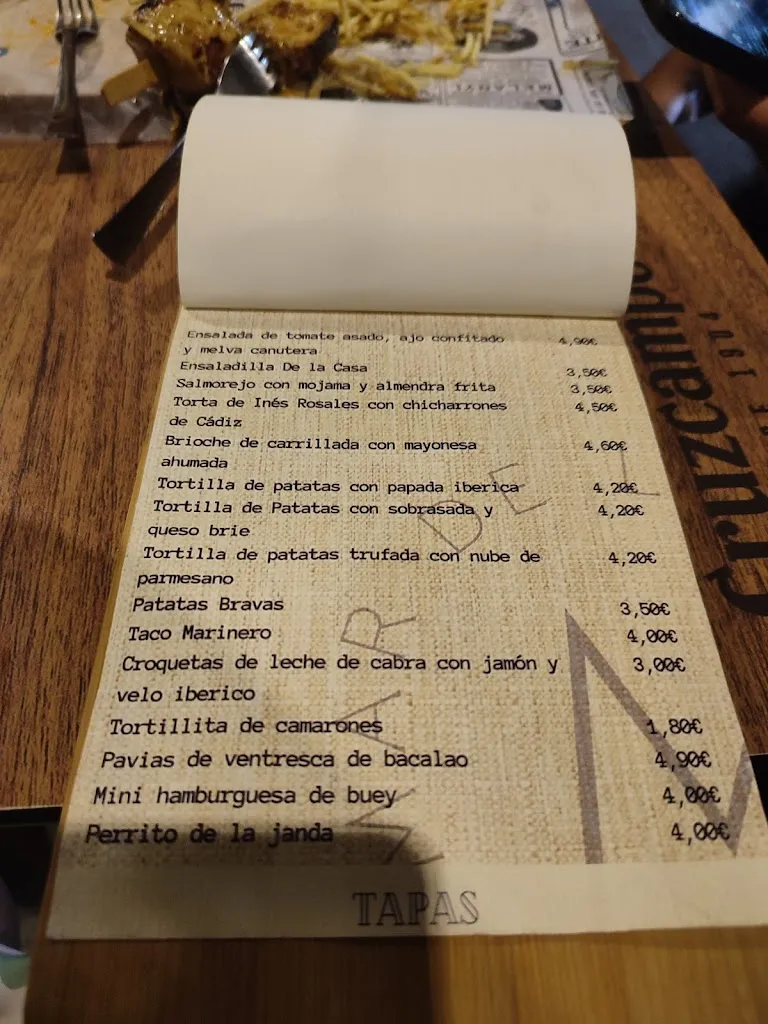 Ensalada de tomate asado, ajo confitado 4,90€
y melva canutera
Ensaladilla De la Casa 3,50€
Salmorejo con mojama y almendra frita 3,50€
Torta de Inés Rosales con chicharrones 4,50€
de Cádiz
Brioche de carrillada con mayonesa 4,60€
ahumada
Tortilla de patatas con papada iberica 4,20€
Tortilla de Patatas con sobrasada y 4,20€
queso brie
Tortilla de patatas trufada con nube de 4,20€
parmesano
Patatas Bravas 3,50€
Taco Marinero 4,00€
Croquetas de leche de cabra con jamón y 3,00€
velo iberico
Tortillita de camarones 1,80€
Pavias de ventresca de bacalao 4,90€
Mini hamburguesa de buey 4,00€
Perrito de la janda 4,00€
MAR DE
TAPAS
Cruzcampo